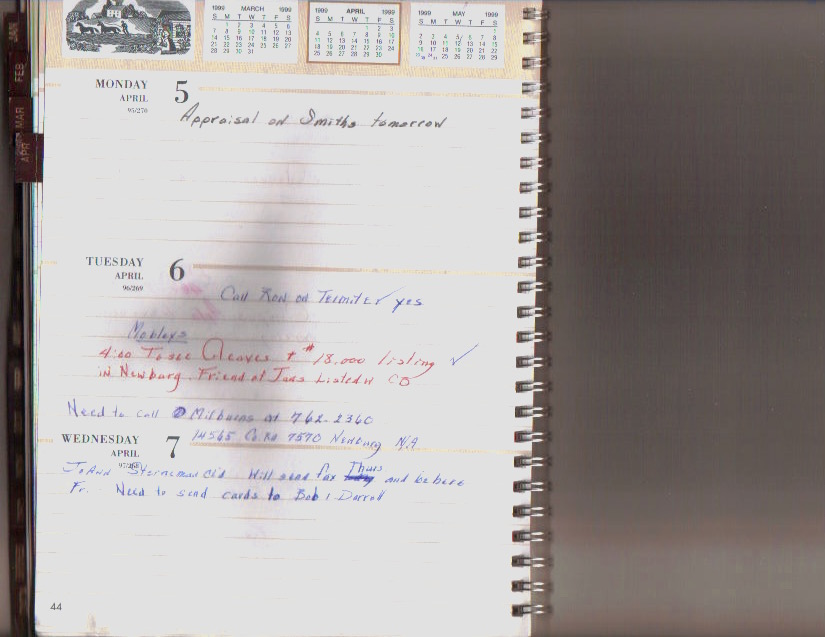 1999 MARCH 1999
S M T W T F S
1 2 3 4 5 6
7 8 9 10 11 12 13
14 15 16 17 18 19 20
21 22 23 24 25 26 27
28 29 30 31
1999 APRIL 1999
S M T W T F S
1 2 3
4 5 6 7 8 9 10
11 12 13 14 15 16 17
18 19 20 21 22 23 24
25 26 27 28 29 30
1999 MAY 1999
S M T W T F S
1
2 3 4 5 6 7 8
9 10 11 12 13 14 15
16 17 18 19 20 21 22
23/30 24/31 25 26 27 28 29
JAN
FEB
MAR
APR
MONDAY 5
APRIL
95/270
Appraisal on Smiths tomorrow
TUESDAY 6
APRIL
96/269
Call Ron on Termite ✓ yes
Mobleys
4:00 To see Cleaves + # 18,000 listing ✓
in Newburg. Friend of Jans Listed w CB
Need to call Milburns at 762-2360
14565 Co Rd 7570 Newburg N/A
WEDNESDAY 7
APRIL
97/268
JoAnn cl'd Will send fax Thurs and be here
Fr. Need to send cards to Bob & Darrell
44